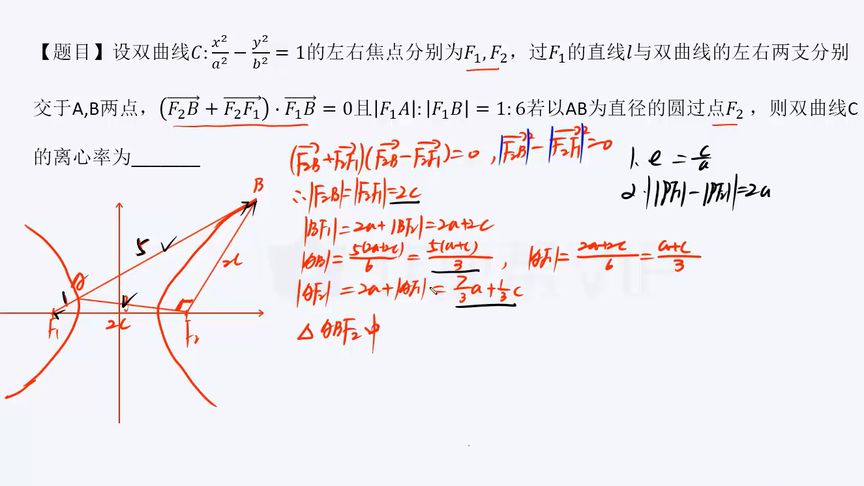 【题目】设双曲线C: x²/a² − y²/b² = 1的左右焦点分别为F₁, F₂，过F₁的直线l与双曲线的左右两支分别
交于A,B两点，(F₂B + F₂F₁) · F₁B = 0且|F₁A|: |F₁B| = 1: 6若以AB为直径的圆过点F₂ ，则双曲线C
的离心率为______
(F₂B+F₂F₁)(F₂B−F₂F₁)=0 , |F₂B|²−|F₂F₁|²=0
1. e = c/a
∴|F₂B|=|F₂F₁|=2c
2. ||PF₁|−|PF₂||=2a
|BF₁|=2a+|BF₂|=2a+2c
|AB|= 5(2a+2c)/6 = 5(a+c)/3 , |AF₁|= 2a+2c/6 = a+c/3
|AF₂| = 2a+|AF₁|= 7/3 a+ 1/3 c
△ABF₂中
B
5
2c
A
1
F₁
2c
F₂